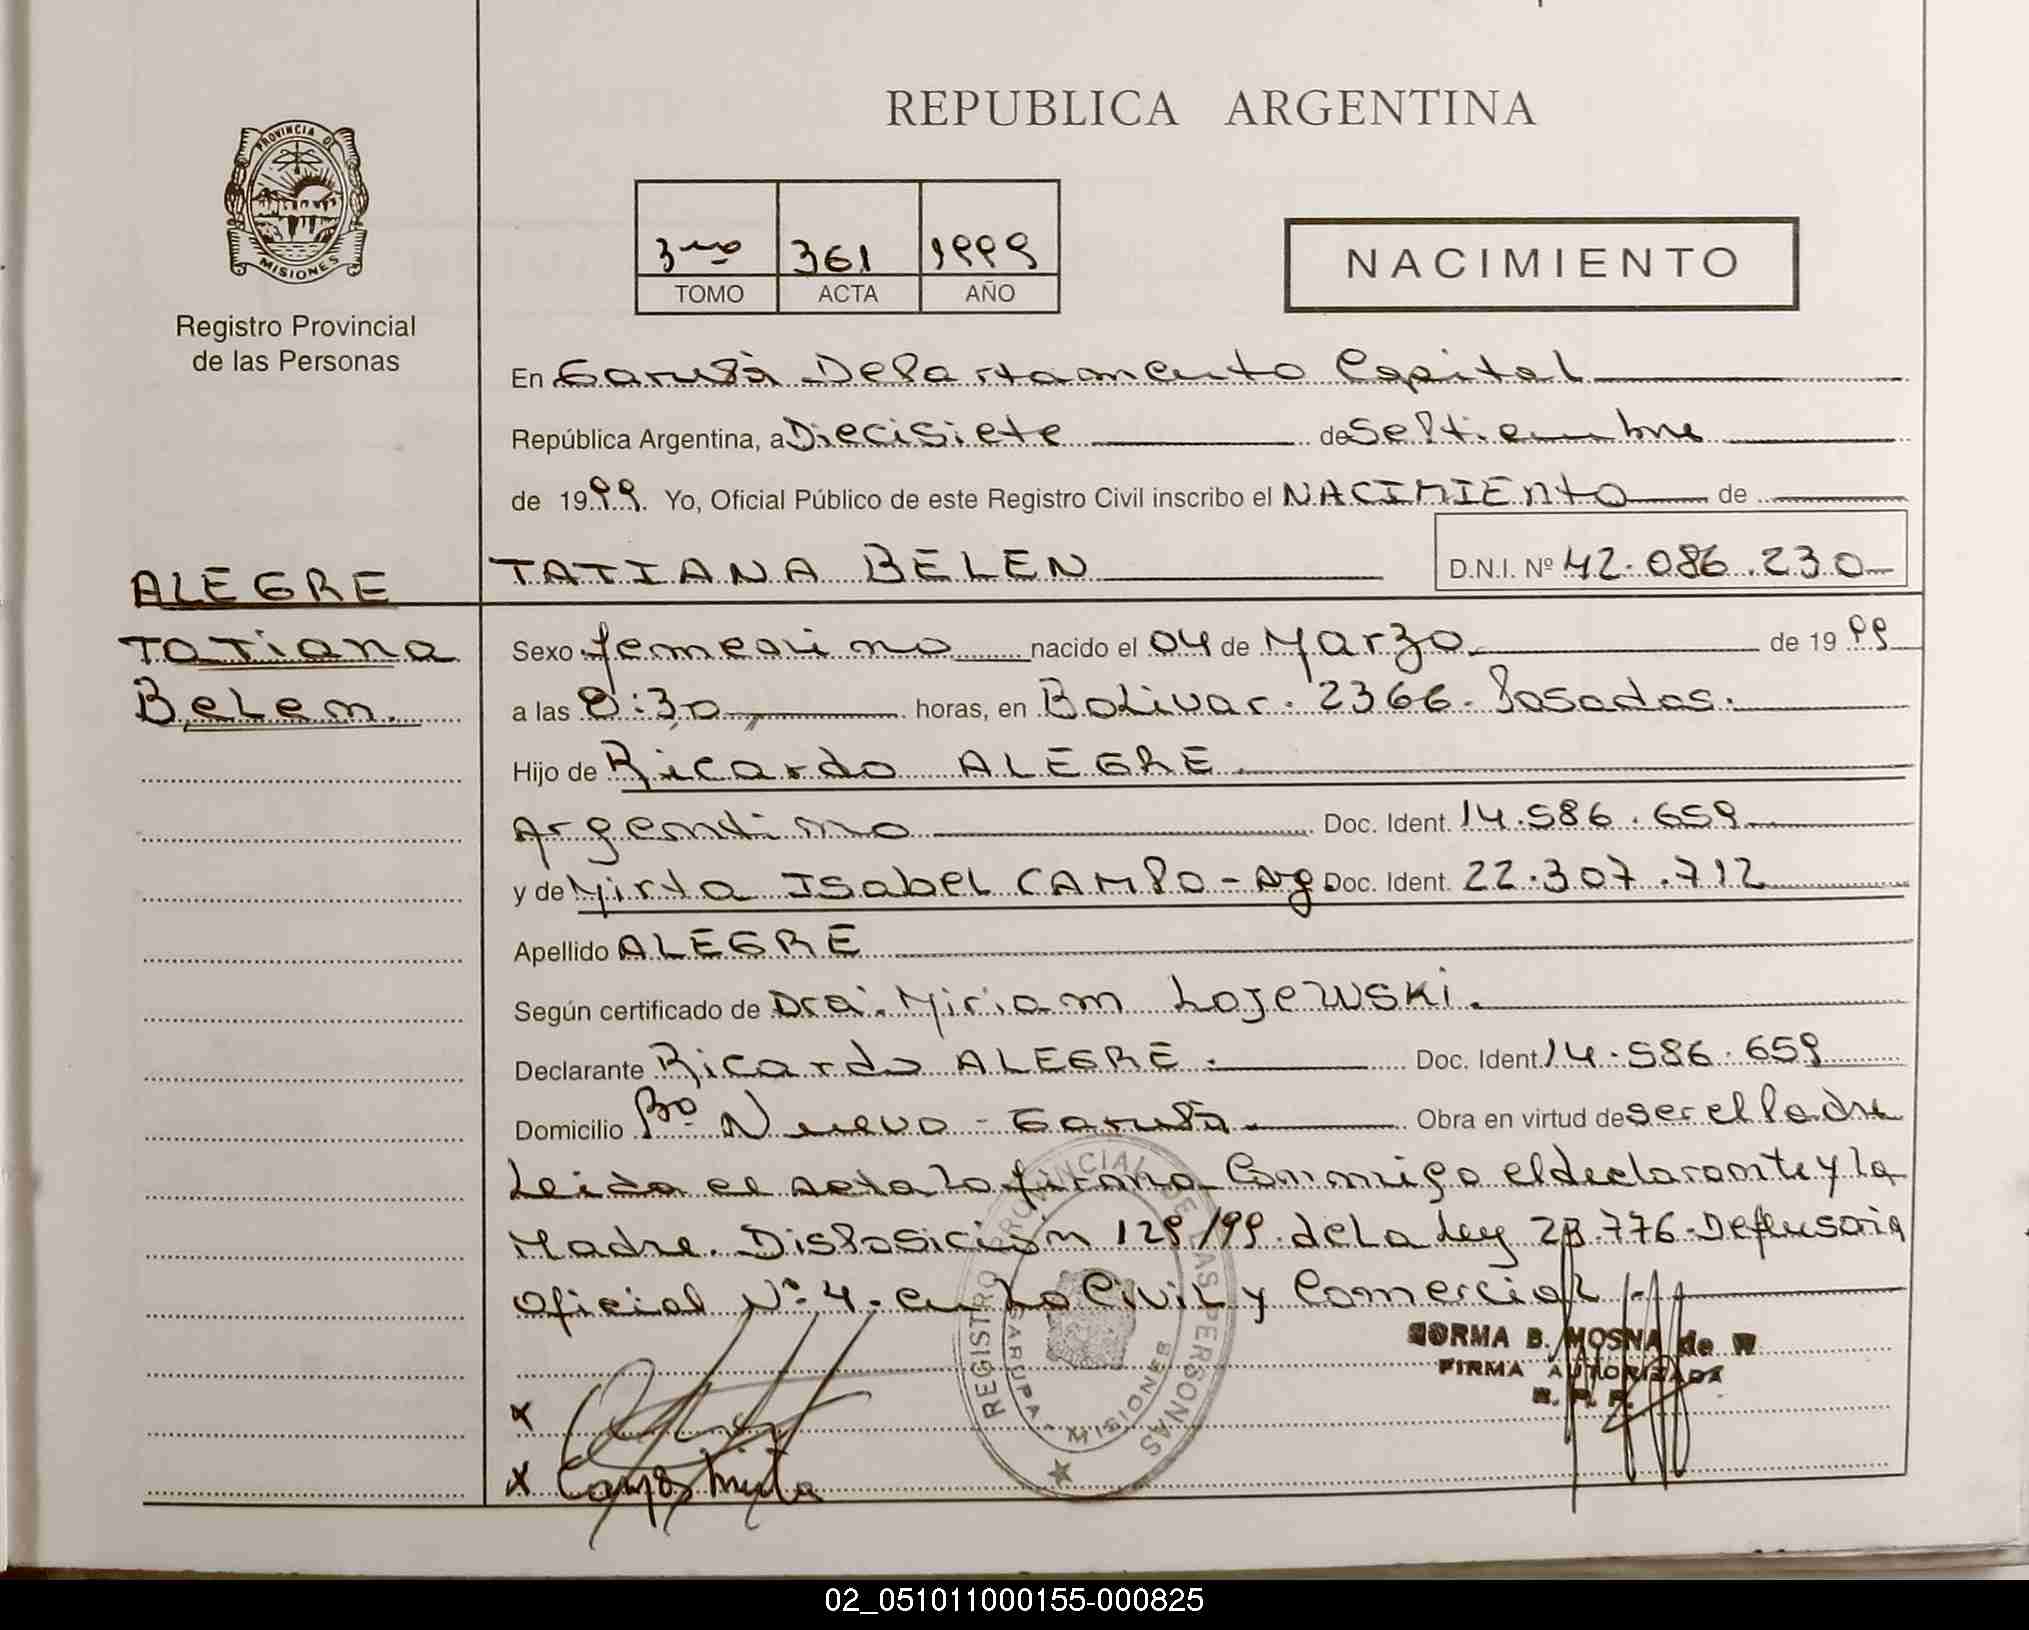 REPUBLICA ARGENTINA
PROVINCIA DE
MISIONES
Registro Provincial
de las Personas
3ro 361 1999
TOMO ACTA AÑO
NACIMIENTO
En Garupá Departamento Capital
República Argentina, a Diecisiete de Septiembre
de 1999. Yo, Oficial Público de este Registro Civil inscribo el NACIMIENTO de
ALEGRE
Tatiana
Belem.
TATIANA BELEN D.N.I. Nº 42.086.230
Sexo femenino nacido el 04 de Marzo de 1999
a las 8:30 horas, en Bolivar. 2366. Posadas.
Hijo de Ricardo ALEGRE
Argentino Doc. Ident. 14.586.659
y de Mirta Isabel CAMPO - Arg Doc. Ident. 22.307.712
Apellido ALEGRE
Según certificado de Dra. Miriam Lojewski.
Declarante Ricardo ALEGRE. Doc. Ident. 14.586.659
Domicilio Bº Nuevo - Garupá. Obra en virtud de ser el Padre
Leida el acta la firma Conmigo el declarante y la
Madre. Disposición 129/99 de la ley 23.776. Defensoria
Oficial Nº 4. en lo Civil y Comercial
REGISTRO PROVINCIAL DE LAS PERSONAS
GARUPA MISIONES
NORMA B. MOSNA de W
FIRMA AUTORIZADA
R. P. P.
x
x Campo Mirta
02_051011000155-000825